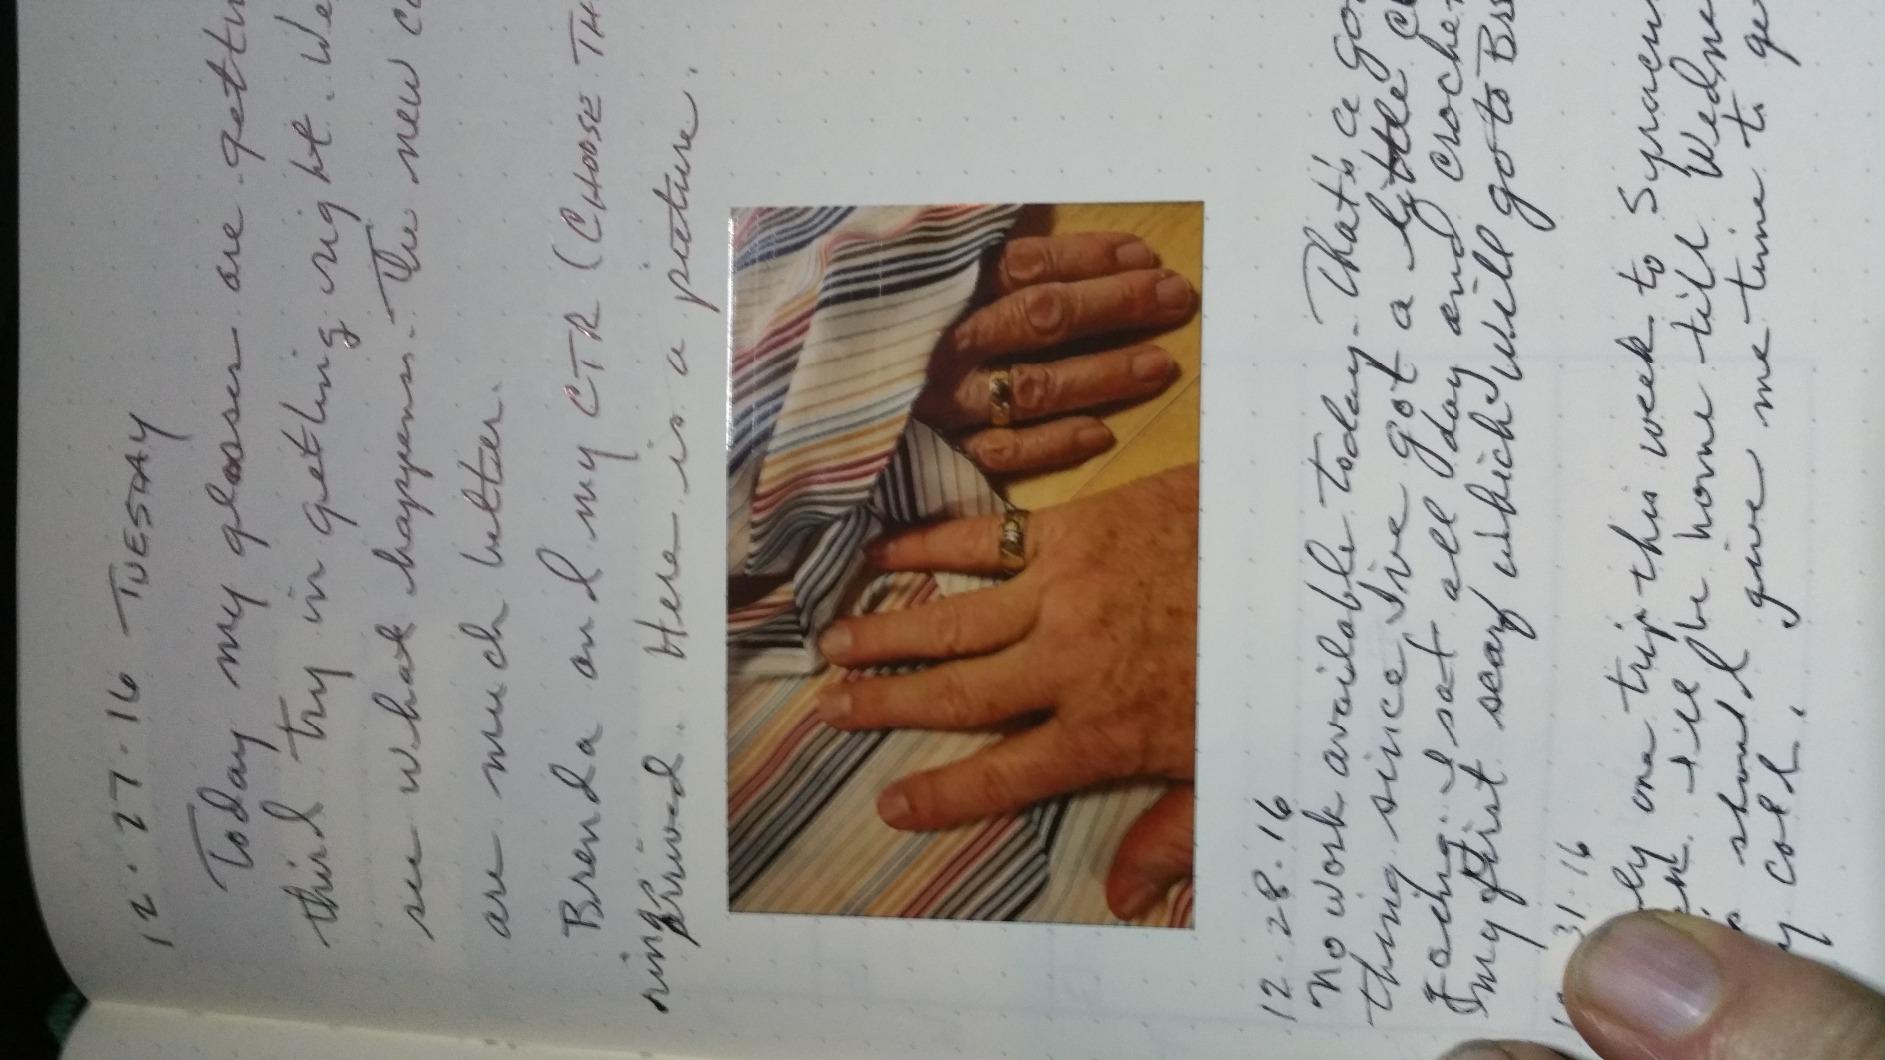 12.27.16 TUESDAY
Today my glasses are
third try in getting right. We
see what happens. The new
are much better.
Brenda and my CTR (CHOOSE
ring arrived. Here is a picture.
12.28.16
No work available today. That's a
thing since I've got a little
I sat all day and
my first scarf which will go to
31.16
one trip this week to
I'll be home till
should give me time to